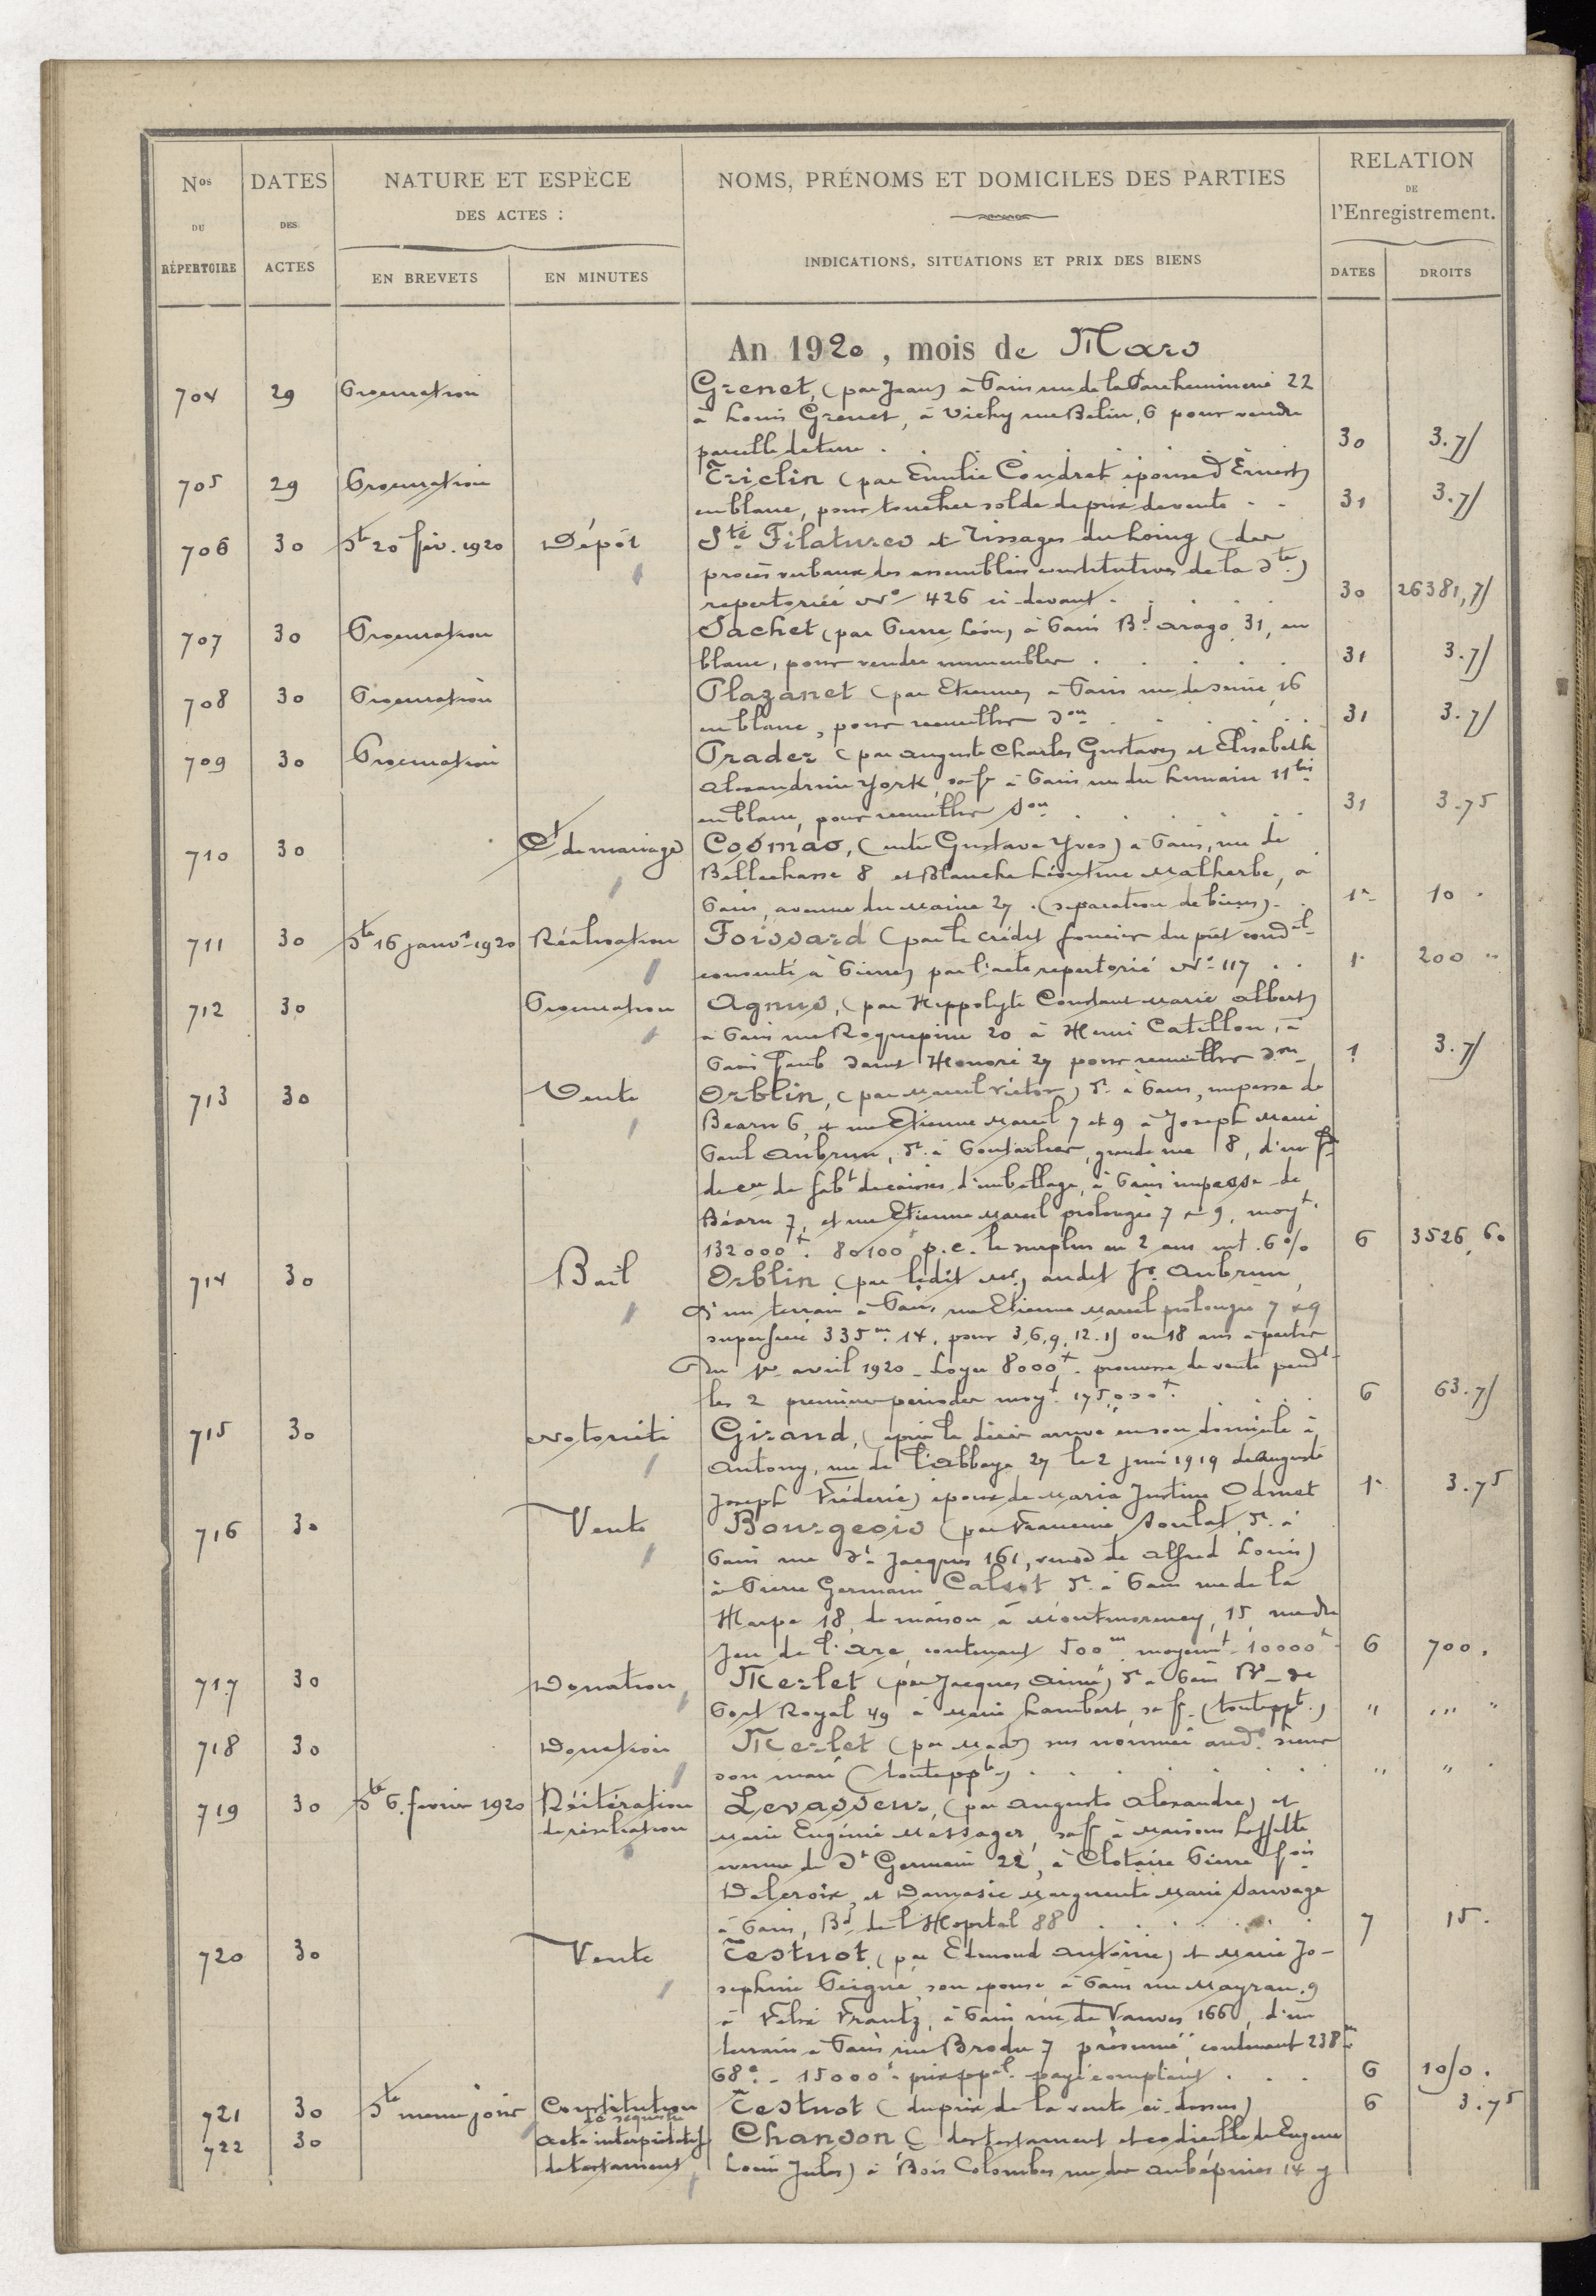 Nos DU RÉPERTOIRE
DATES DES ACTES
NATURE ET ESPÈCE DES ACTES :
EN BREVETS
EN MINUTES
NOMS, PRÉNOMS ET DOMICILES DES PARTIES
INDICATIONS, SITUATIONS ET PRIX DES BIENS
RELATION DE l'Enregistrement.
DATES
DROITS
An 1920, mois de Mars
704 29 Procuration Grenet, (par Jean) à Paris rue de la Parcheminerie 22
à Louis Grenet, à Vichy rue Belin, 6 pour vendre
parcelle de terre . 30 3.75
705 29 Procuration Triclin (par Emilie Condret épouse d'Ernest)
en blanc, pour toucher solde de prix de vente . . 31 3.75
706 30 Ste 20 fév. 1920 Dépôt Sté Filatures et Tissages du Loing (des
procès verbaux des assemblées constitutives de la Ste)
repertoriée No 426 ci-devant . 30 26381,75
707 30 Procuration Sachet (par Pierre Léon) à Paris Bd Arago 31, en
blanc, pour vendre immeubles . 31 3.75
708 30 Procuration Plazanet (par Etienne) à Paris rue de Seine 16
en blanc, pour recueillir son . 31 3.75
709 30 Procuration Prader (par Auguste Charles Gustave) et Elisabeth
Alexandrine York, sa fe à Paris rue du Lunain 11bis
en blanc, pour recueillir son . 31 3.75
710 30 Ct de mariage Cosmao, (entre Gustave Yves) à Paris, rue de
Bellechasse 8 et Blanche Léontine Malherbe, à
Paris, avenue du Maine 27. (séparation de biens) . 1er 10 .
711 30 Ste 16 janvr 1920 Réalisation Foissard (par le crédit foncier du prêt condel
consenti à Pierre) par l'acte repertorié No 117 . . 1er 200 "
712 30 Procuration Agnus, (par Hippolyte Constant Marie Albert)
à Paris rue Roquepine 20 à Henri Catillon, à
Paris faub Saint Honoré 27 pour recueillir son 1 3.75
713 30 Vente Orblin, (par Marcel Victor) dt à Paris, impasse de
Béarn 6, et rue Etienne Marcel 7 et 9 à Joseph Marie
Paul Aubrun, dt à Pontarlier, grande rue 8, d'un fds
de cce de fabt de caisses d'emballage, à Paris impasse de
Béarn 7, et rue Etienne Marcel prolongée 7 & 9, moyt
132000f. 80100f p.c. le surplus en 2 ans int. 6% 6 3526,60
714 30 Bail Orblin (par ledit Mr) audit Jh Aubrun,
D'un terrain à Paris, rue Etienne Marcel prolongée 7 & 9
superficie 335m 14, pour 3,6,9,12,15 ou 18 ans à partir
Du 1er avril 1920 - Loyer 8000f. promesse de vente pendt
les 2 premières périodes moyt 175,000f. 6 63.75
715 30 Notoriété Girand, (après le décès arrivé en son domicile à
Antony, rue de l'Abbaye 27 le 2 juin 1919 de Auguste
Joseph Frédéric) époux de Maria Justine Odinet 1er 3.75
716 30 Vente Bourgeois (par Francine Soulat, dt à
Paris rue St Jacques 161, veuve de Alfred Louis)
à Pierre Germain Calsat dt à Paris rue de la
Harpe 18, de maison à Montmorency, 15, rue du
Jeu de l'arc, contenant 500m moyennt 10000f 6 700.
717 30 Donation Merlet (par Jacques Aimé) dt à Paris Bd de
Port Royal 49 à Marie Lambert sa fe (toute ppté) " " "
718 30 Donation Merlet (par Made) sus nommée aud. sieur
son mari (toute ppté) . " "
719 30 Ste 6 fevrier 1920 Réitération de résiliation Levasseur, (par Auguste Alexandre) et
Marie Eugénie Messager, sa fe à Maisons Laffitte
avenue de St Germain 22, à Clotaire Pierre fois
Delcroix, et Damasie Marguerite Marie Sauvage
à Paris, Bd de l'Hopital 88 . 7 15.
720 30 Vente Testuot, (par Edmond Antoine) et Marie Jo-
sephine Peigné, son épouse, à Paris rue Mayran, 9
à Felix Frantz, à Paris, rue de Vanves 166, d'un
terrain à Paris rue Brodu 7 présumé, contenant 238m
68c. - 15000f prix ppal payé comptant . . . 6 1050.
721 30 Ste meme jour Constitution de séquestre Testuot (du prix de la vente ci-dessus) 6 3.75
722 30 Acte interprétatif Chanson (des testament et codicille de Eugène
de testament Louis Jules) à Bois Colombes rue des Aubépines 14 y